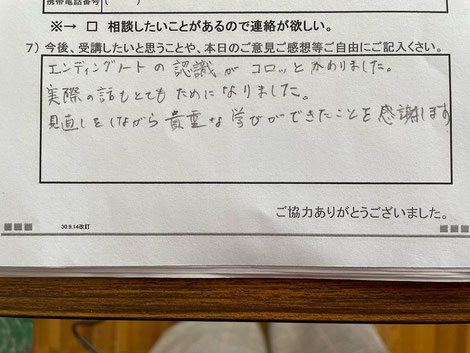 携帯電話番号(　　)
※→ □ 相談したいことがあるので連絡が欲しい。
7）今後、受講したいと思うことや、本日のご意見ご感想等ご自由にご記入ください。
エンディングノートの認識がコロッとかわりました。
実際の話もとてもためになりました。
見直しをしながら貴重な学びができたことを感謝します
ご協力ありがとうございました。
30.9.14改訂